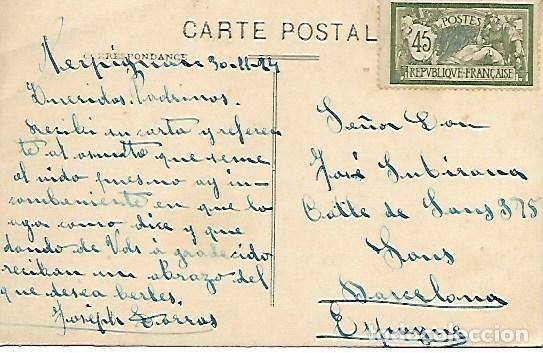 CARTE POSTALE
CORRESPONDANCE
POSTES
45
REPUBLIQUE FRANÇAISE
Perpignan 30-11-24
Queridos Padrinos.
recibi su carta y referen
te al asunto que seme
al vido pues no ay in
combeniente en que lo
aga como dice y que
dando de Vds à gradecido
reciban un abrazo del
que desea berles.
Joseph Torras
Señor Don
José Subirana
Calle de Sans 375
Sans
Barcelona
Espagne
todocoleccion